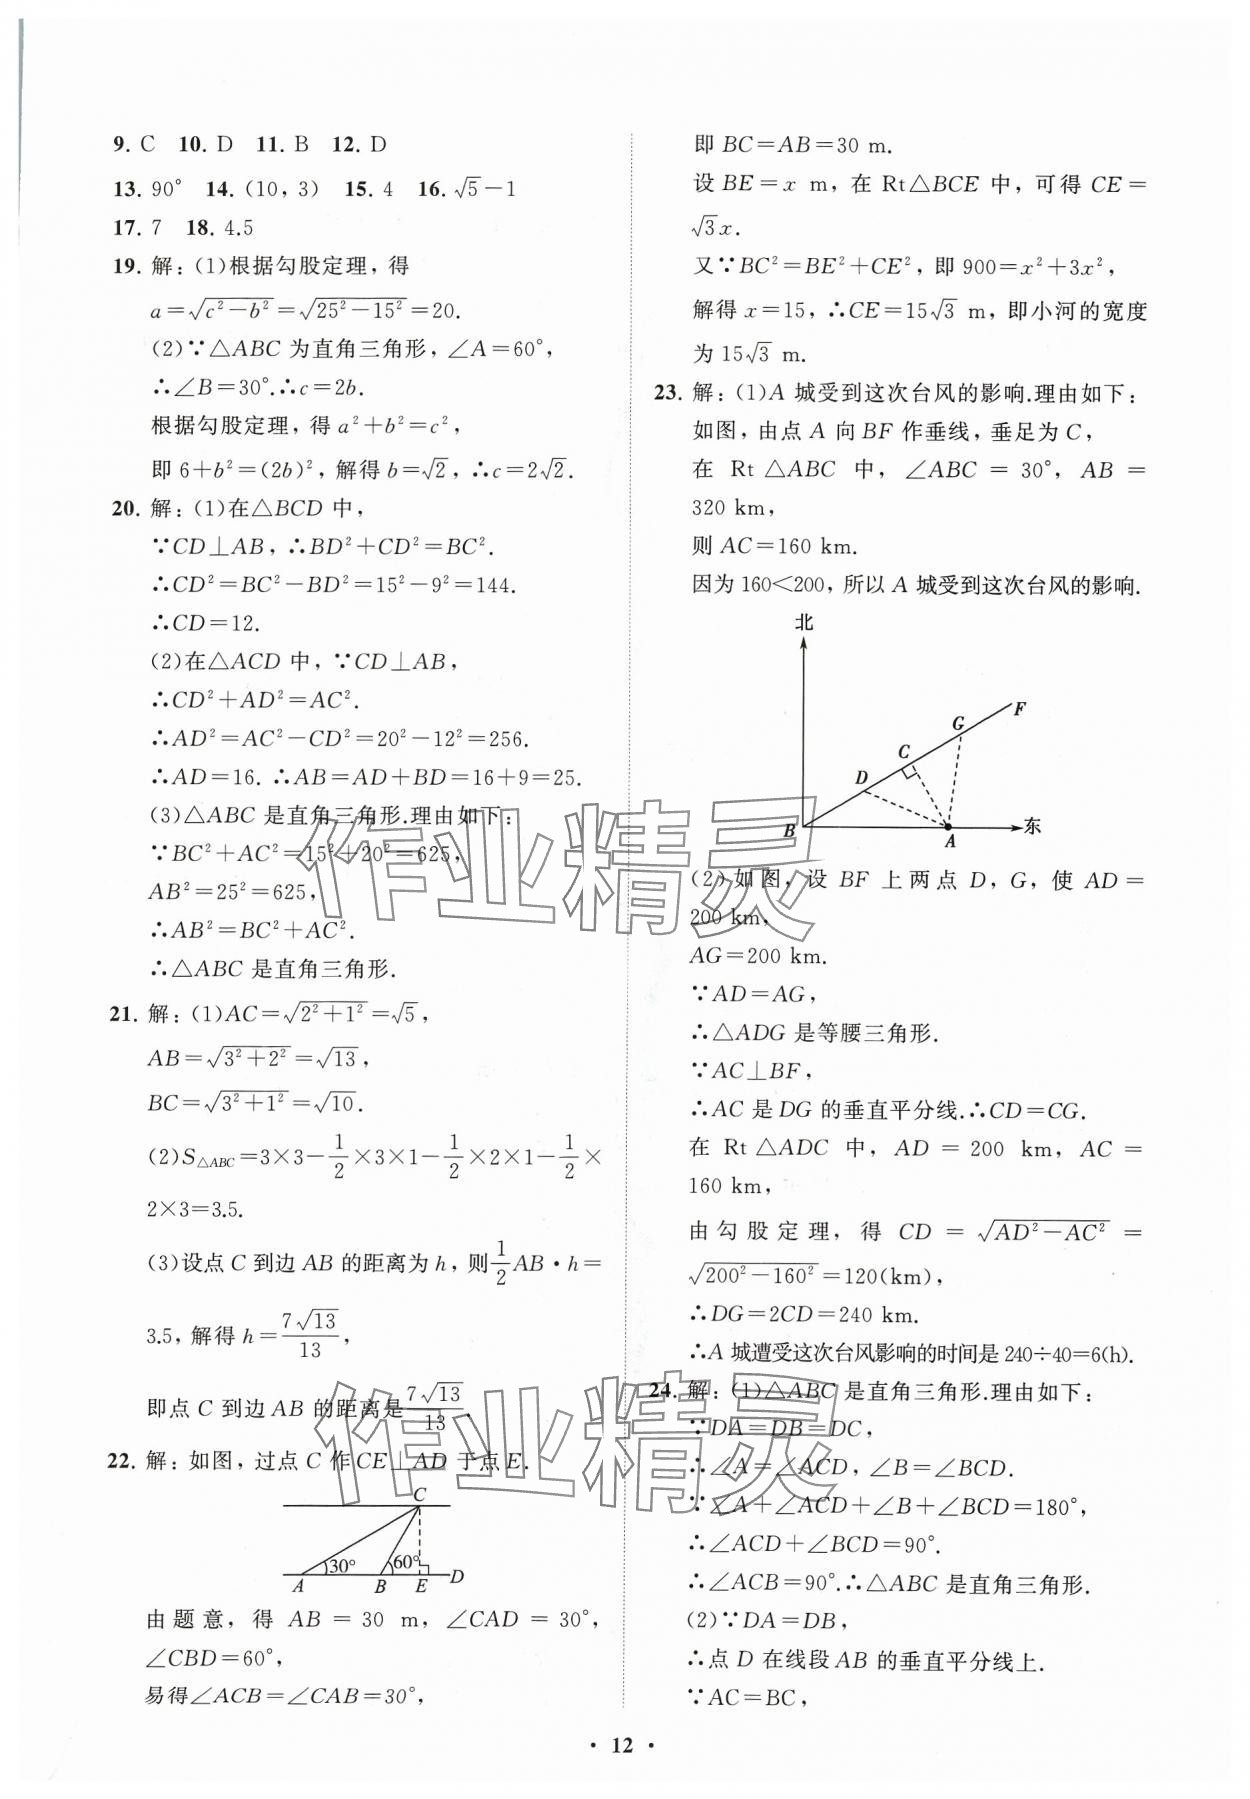 9. C  10. D  11. B  12. D
13. 90°  14. (10, 3)  15. 4  16. √5－1
17. 7  18. 4.5
19. 解：(1)根据勾股定理，得
a＝√(c²－b²)＝√(25²－15²)＝20.
(2)∵△ABC 为直角三角形，∠A＝60°，
∴∠B＝30°.∴c＝2b.
根据勾股定理，得 a²＋b²＝c²，
即 6＋b²＝(2b)²，解得 b＝√2，∴c＝2√2.
20. 解：(1)在△BCD 中，
∵CD⊥AB，∴BD²＋CD²＝BC².
∴CD²＝BC²－BD²＝15²－9²＝144.
∴CD＝12.
(2)在△ACD 中，∵CD⊥AB，
∴CD²＋AD²＝AC².
∴AD²＝AC²－CD²＝20²－12²＝256.
∴AD＝16. ∴AB＝AD＋BD＝16＋9＝25.
(3)△ABC 是直角三角形.理由如下：
∵BC²＋AC²＝15²＋20²＝625，
AB²＝25²＝625，
∴AB²＝BC²＋AC².
∴△ABC 是直角三角形.
21. 解：(1)AC＝√(2²＋1²)＝√5，
AB＝√(3²＋2²)＝√13，
BC＝√(3²＋1²)＝√10.
(2)S△ABC＝3×3－1/2×3×1－1/2×2×1－1/2×
2×3＝3.5.
(3)设点 C 到边 AB 的距离为 h，则1/2AB·h＝
3.5，解得 h＝7√13/13，
即点 C 到边 AB 的距离是7√13/13.
22. 解：如图，过点 C 作 CE⊥AD 于点 E.
C
30° 60°
A B E D
由题意，得 AB＝30 m，∠CAD＝30°，
∠CBD＝60°，
易得∠ACB＝∠CAB＝30°，
即 BC＝AB＝30 m.
设 BE＝x m，在 Rt△BCE 中，可得 CE＝
√3x.
又∵BC²＝BE²＋CE²，即 900＝x²＋3x²，
解得 x＝15，∴CE＝15√3 m，即小河的宽度
为 15√3 m.
23. 解：(1)A 城受到这次台风的影响.理由如下：
如图，由点 A 向 BF 作垂线，垂足为 C，
在 Rt△ABC 中，∠ABC＝30°，AB＝
320 km，
则 AC＝160 km.
因为 160＜200，所以 A 城受到这次台风的影响.
北
F
G
C
D
B 东
A
(2)如图，设 BF 上两点 D，G，使 AD＝
200 km，
AG＝200 km.
∵AD＝AG，
∴△ADG 是等腰三角形.
∵AC⊥BF，
∴AC 是 DG 的垂直平分线.∴CD＝CG.
在 Rt△ADC 中，AD＝200 km，AC＝
160 km，
由勾股定理，得 CD＝√(AD²－AC²)＝
√(200²－160²)＝120(km)，
∴DG＝2CD＝240 km.
∴A 城遭受这次台风影响的时间是 240÷40＝6(h).
24. 解：(1)△ABC 是直角三角形.理由如下：
∵DA＝DB＝DC，
∴∠A＝∠ACD，∠B＝∠BCD.
∵∠A＋∠ACD＋∠B＋∠BCD＝180°，
∴∠ACD＋∠BCD＝90°.
∴∠ACB＝90°.∴△ABC 是直角三角形.
(2)∵DA＝DB，
∴点 D 在线段 AB 的垂直平分线上.
∵AC＝BC，
作业精灵
作业精灵
· 12 ·